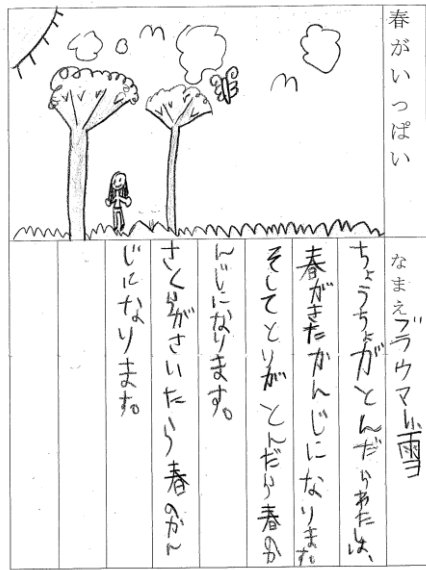 春がいっぱい
なまえブラウマ小雪
ちょうちょがとんだらわたしは、
春がきたかんじになります。
そしてとりがとんだら春のか
んじになります。
さくらがさいたら春のかん
じになります。